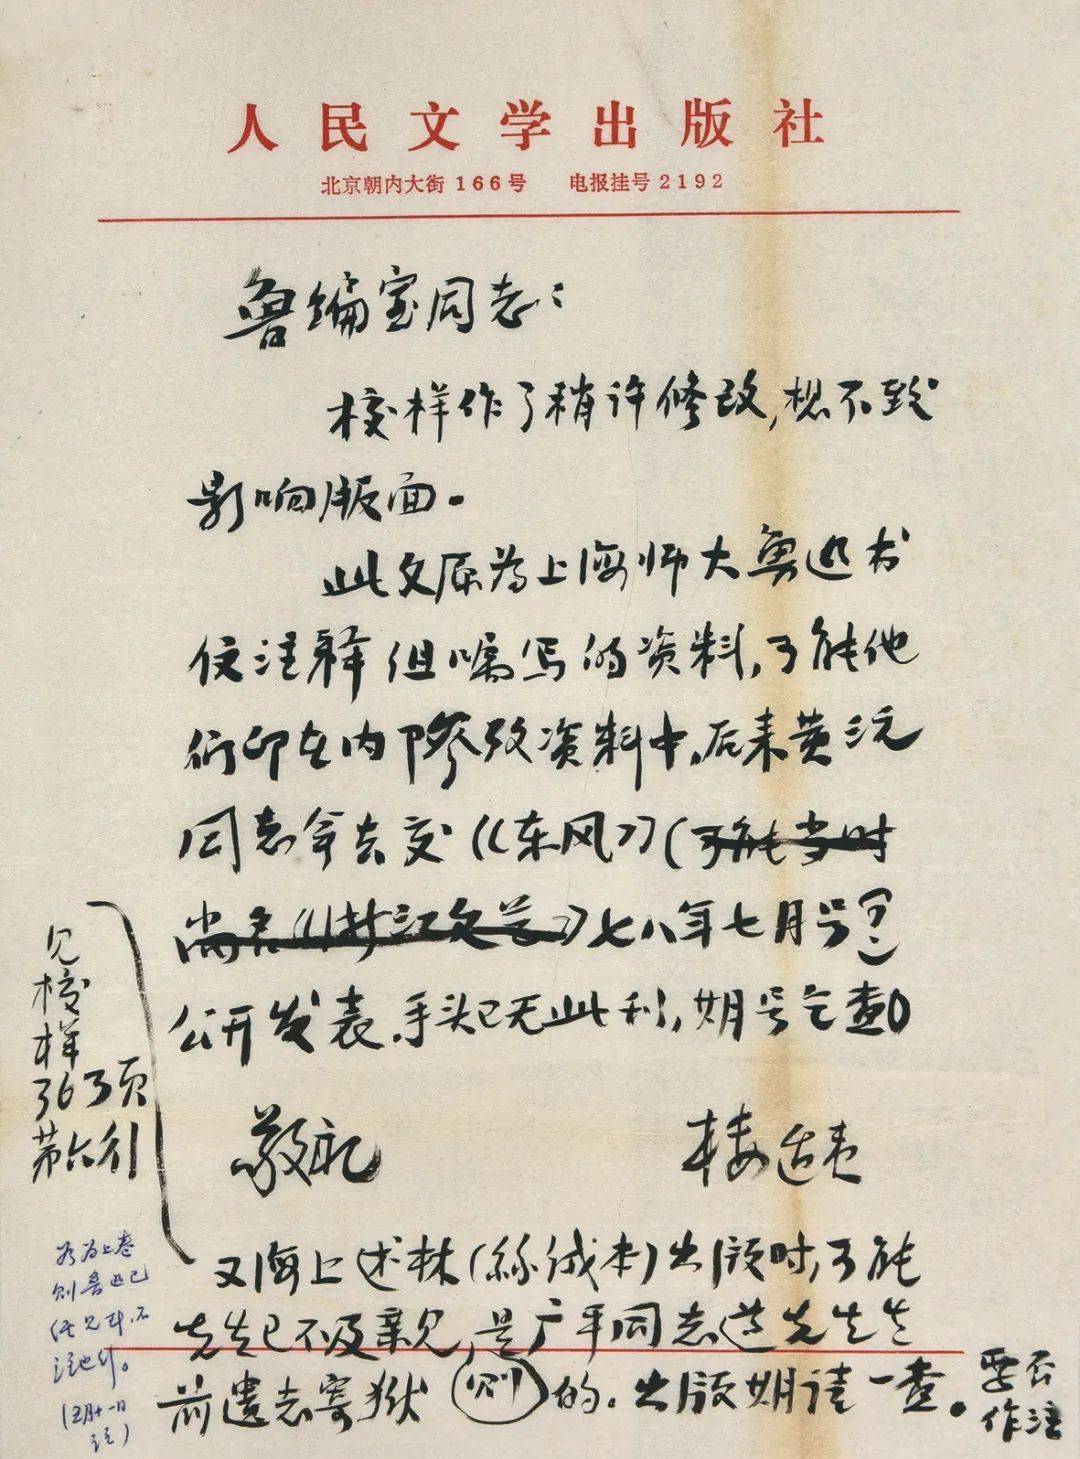 人民文学出版社
北京朝内大街166号 电报挂号2192
鲁编室同志：
校样作了稍许修改，想不致
影响版面。
此文原为上海师大鲁迅书
信注释组嘱写的资料，可能他
们印在内部参考资料中，后来黄源
同志拿去交《东风》（可能当时
尚名《浙江文艺》）七八年七月号（？）
公开发表，手头已无此刊，期号乞查
敬礼
楼适夷
又海上述林（丝绒本）出版时，可能
先生已不及亲见，是广平同志遵先生生
前遗志寄狱（则）的。出版期请一查。
要否
作注
见校
样
363页
第六行
若为上卷
则鲁迅已
注也行。